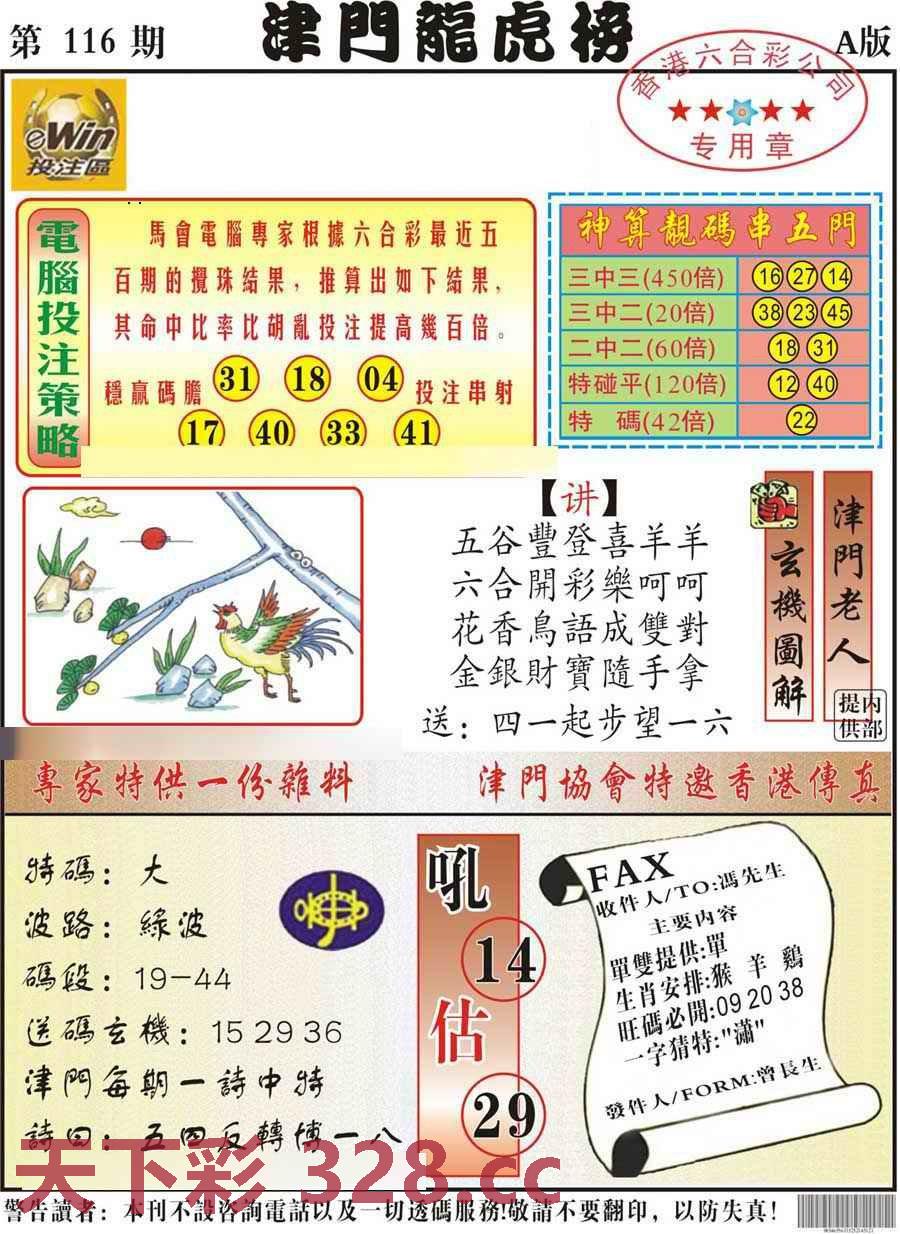 第 116 期
津門龍虎榜
A版
香港六合彩公司
专用章
eWin
投注區
電腦投注策略
馬會電腦專家根據六合彩最近五
百期的攪珠結果，推算出如下結果，
其命中比率比胡亂投注提高幾百倍。
穩贏碼膽 31 18 04 投注串射
17 40 33 41
神算靚碼串五門
三中三(450倍) 16 27 14
三中二(20倍) 38 23 45
二中二(60倍) 18 31
特碰平(120倍) 12 40
特 碼(42倍) 22
【讲】
五谷豐登喜羊羊
六合開彩樂呵呵
花香鳥語成雙對
金銀財寶隨手拿
送：四一起步望一六
玄機圖解
津門老人
内部提供
專家特供一份雜料
津門協會特邀香港傳真
特碼：大
波路：綠波
碼段：19-44
送碼玄機：15 29 36
津門每期一詩中特
詩曰：五四反轉博一八
吼
14
估
29
FAX
收件人/TO:馮先生
主要内容
單雙提供:單
生肖安排:猴 羊 鷄
旺碼必開:09 20 38
一字猜特:"瀟"
發件人/FORM:曾長生
天下彩 328.cc
警告讀者：本刊不設咨詢電話以及一切透碼服務!敬請不要翻印，以防失真!